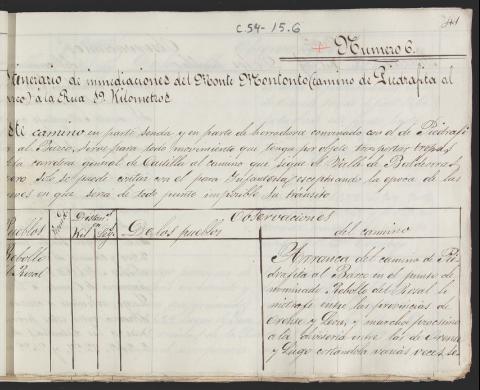 C.54-15.6
41
Numero 6.
Itinerario de inmediaciones del Monte Montonto (camino de Piedrafita al
Barco) á la Rua 39 Kilometros
Este camino en parte senda y en parte de herradura convinado con el de Piedrafi
ta al Barco, sirve para todo movimiento que tenga por objeto trasportar tropas
de la carretera general de Castilla al camino que sigue el Valle de Valdeorras,
pero solo se puede contar con el para Infanteria, esceptuando la epoca de las
nieves en que será de todo punto imposible su tránsito
Pueblos
Distan.as
Kil.s
Observaciones
De los pueblos
del camino
Rebollo
del Resal
Arranca del camino de Pie
drafita al Barco en el punto de
nominado Rebollo del Resal li
mítrofe entre las provincias de
Orense y Leon, y marcha proximo
a la divisoria entre las de Orense
y Lugo cortandola varias veces, se